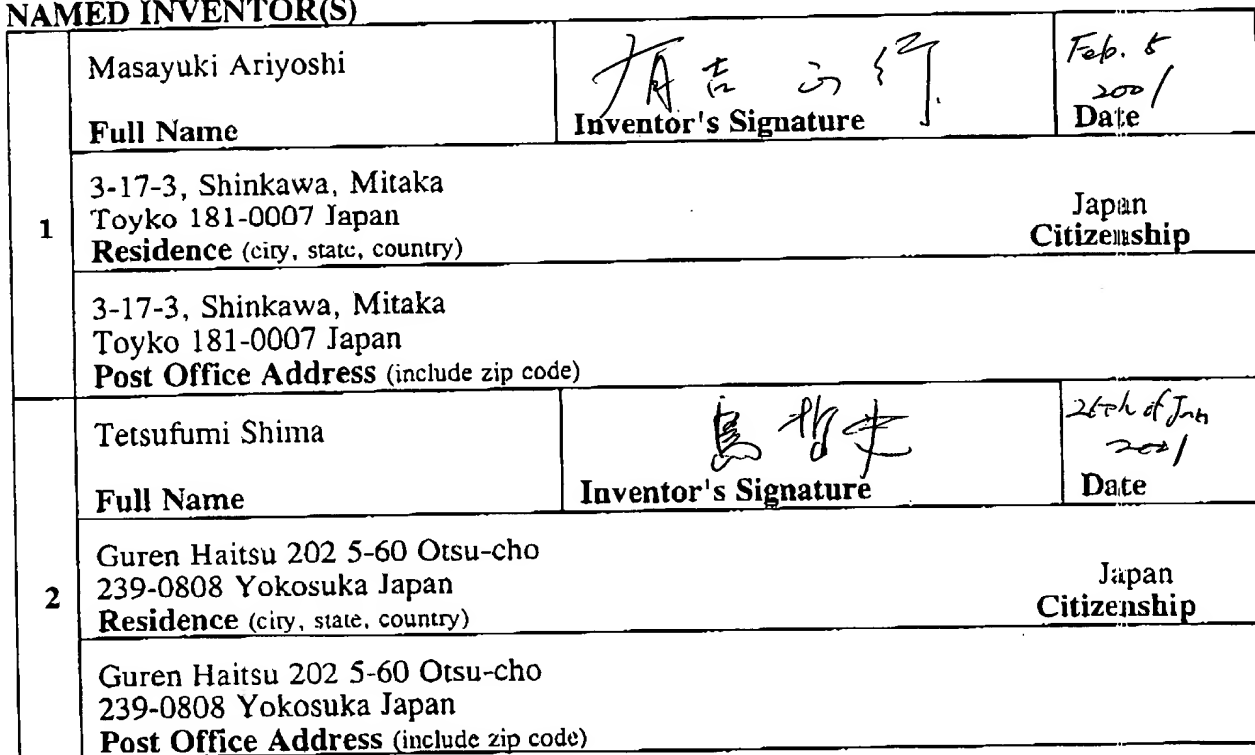 NAMED INVENTOR(S)
1
Masayuki Ariyoshi
Full Name
有吉
Inventor's Signature
Feb. 5
2001
Date
3-17-3, Shinkawa, Mitaka
Toyko 181-0007 Japan
Residence (city, state, country)
Japan
Citizenship
3-17-3, Shinkawa, Mitaka
Toyko 181-0007 Japan
Post Office Address (include zip code)
2
Tetsufumi Shima
Full Name
島 哲史
Inventor's Signature
26th of Jan
2001
Date
Guren Haitsu 202 5-60 Otsu-cho
239-0808 Yokosuka Japan
Residence (city, state, country)
Japan
Citizenship
Guren Haitsu 202 5-60 Otsu-cho
239-0808 Yokosuka Japan
Post Office Address (include zip code)